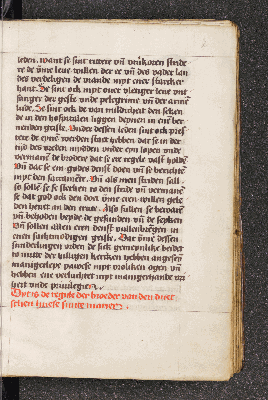 leden. want se sint rittere vn̄ vrukoren stride
re de dyme leue willen der ee vn̄ des vader lan
des verdeligen de viande myt ener starcker
hant. Se sint ock myt ouer vlenger leue vnt
fanger der geste vnde pelegrime vn̄ der arme
lude. Se sint ock de van mildicheit den seken
de in den hospitalen liggen deynen in ener ber
nenden geiste. Vnder dessen leden sint ock pres
tere de eyne werden stat hebben dat se in der
tijd des vreden midden vnder em lopen vnde
vermanē de brodere dat se ere regele vast holdē
Vn̄ dat se em godes denst doen vn̄ se berichtē
myt den sacramēte. Vn̄ als men striden sall
so sollē se se sterken to den stride vn̄ vermanē
se dat god ock den doet dyme eren willen gelē
den heuet an den cruce. Also sullen se bewarē
vn̄ behoden beyde de gesunden vn̄ de seyken
Vn̄ sollen allen eren denst vullenbrengen in
enen sachtmodigen geiste. Dat dyme dessen
sunderlingen orden de sick gemeynliker heidet
to nutte der hilligen kercken hebben angesen
mannigerleye pawese myt vroliken ogen vn̄
hebben ene verluchtet myt mannigerhande vr
heit vnde priuilegien.
Dyt is de regule der broeder van den duet
schen huese sunte marien.